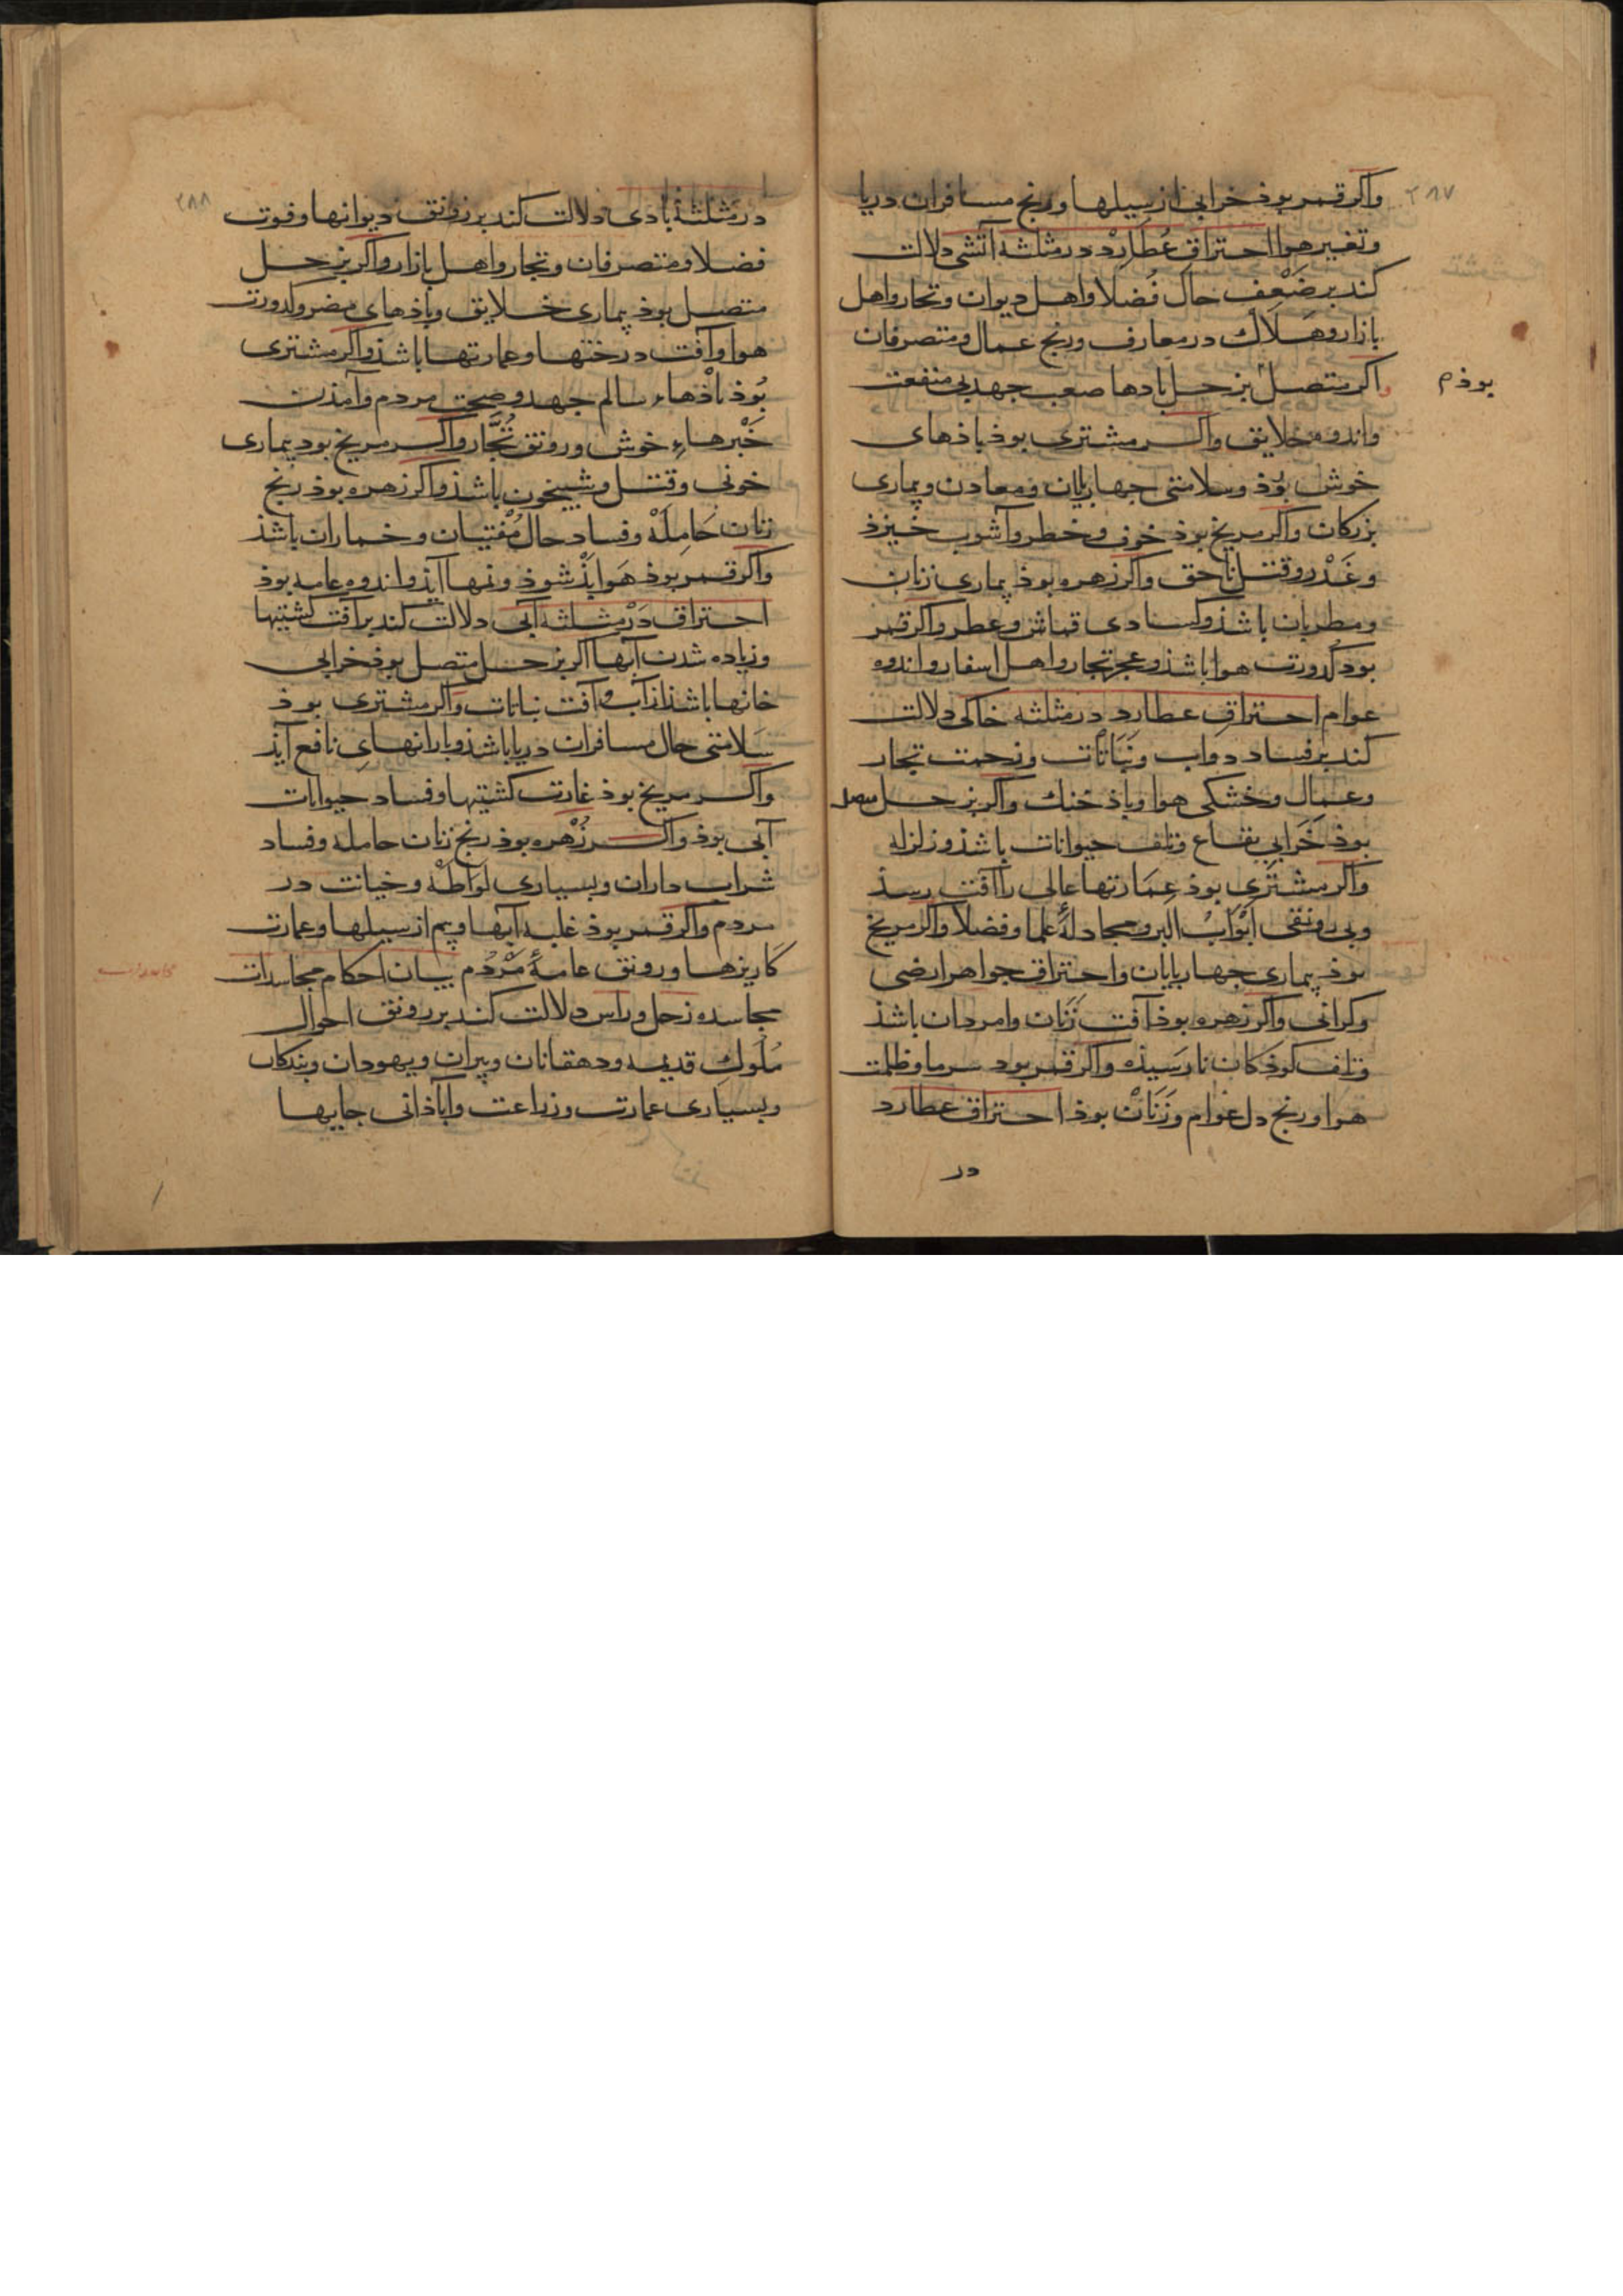 ۲۸۷
واکر قمر بوذ خرابی از سیلها و رنج مسافران دریا
وتغیر هوا احتراقِ عُطارِدْ در مثلثه اتشی دلالت
کند بر ضَعْفِ حال فُضلا و اهل دیوان وتجار واهل
بازار وهَلاك در معارف ورنج عمال ومتصرفان
اکر متصل بزحل بادها صعب جهد بی منفعت
بوذ م
واندوه خلایق واکر مشتری بوذ باذهای
خوش بوَذ وسلامتی جهارپایان ومعادن وبیماری
بزرکان واکر مریخ بوذ خوف وخطر وآشوب خیزذ
وغَدْر وقتل ناحق واکر زهره بوذ بیماری زنان
ومطربان باشذ وکسادی قماش وعطر واکر قمر
بود کدورت هوا باشذ وعجز تجار واهل اسفار واندوه
عوام احتراقِ عطارد در مثلثه خاکی دلالت
کند بر فساد دواب ونَبَاتات وزحمت تجار
وعمال وخشکی هوا وباذ خنك واکر بزحل متصل
بوذ خَرَابی بقاع وتلف حیوانات باشذ وزلزله
واکر مشتَرِی بوذ عِمَارتها عالی را آفت رسذ
وبی رونقی اَبْوَابُ البر ومجادلهٔ علما وفضلا واکر مریخ
بوذ بیماری جهارپایان واحتراق جواهر ارضی
وکرانی واکر زهره بوذ آفت زَنان وامردان باشذ
وتلف کوذکان نارَسَیذه واکر قمر بود سرما وظلمت
هوا ورنج دل عوام وزَنَانْ بوذ احتراق عطارد
در
۲۸۸
در مثلثهٔ بادی دلالت کند بر رونق دیوانها وفوت
فضلا ومتصرفان وتجار واهل بازار واکر بزحل
متصل بوذ بیماری خلایق وباذهای مضر وکدورت
هوا وآفت درختها وعمارتها باشذ واکر مشتری
بُوَذ باذهاء سالم جهد وصحت مردم وآمذن
خَبْرهاءِ خوش ورونق تُجَّار واکر مریخ بود بیماری
خونی وقتل وشبیخون باشذ واکر زهره بوذ رنج
زنان حَامِلَهْ وفساد حال مُفتیان وخماران باشذ
واکر قمر بوذ هَوا بَذْ شوذ ونمها آیذ واندوه عامه بوذ
احتراق دَرْ مثلثه آبی دلالت کند بر آفت کشتیها
وزیاده شدن آبها اکر بزحل متصل بوذ خرابی
خانها باشذ از آب وآفت نباتات واکر مشتری بوذ
سَلامتی حال مسافران دریا باشذ وبارانهایِ نافع آیذ
واکر مریخ بوذ غارت کشتیها وفساد حیوانات
آبی بوذ واکر زُهْره بوذ رنج زنان حامله وفساد
شراب داران وبسیاری لوَاطَهْ وخیانت در
مردم واکر قمر بوذ غلبه آبها وبیم از سیلها وعمارت
کاریزها ورونق عامهٔ مَرْدُم بیان احکام مجاسدات
مجاسده زحل وراس دلالت کند بر رونق احوال
مُلُوكِ قدیمه ودهقانان وپیران ویهودان وبندکان
وبسیاری عمارت وزراعت وآباذانی جایها